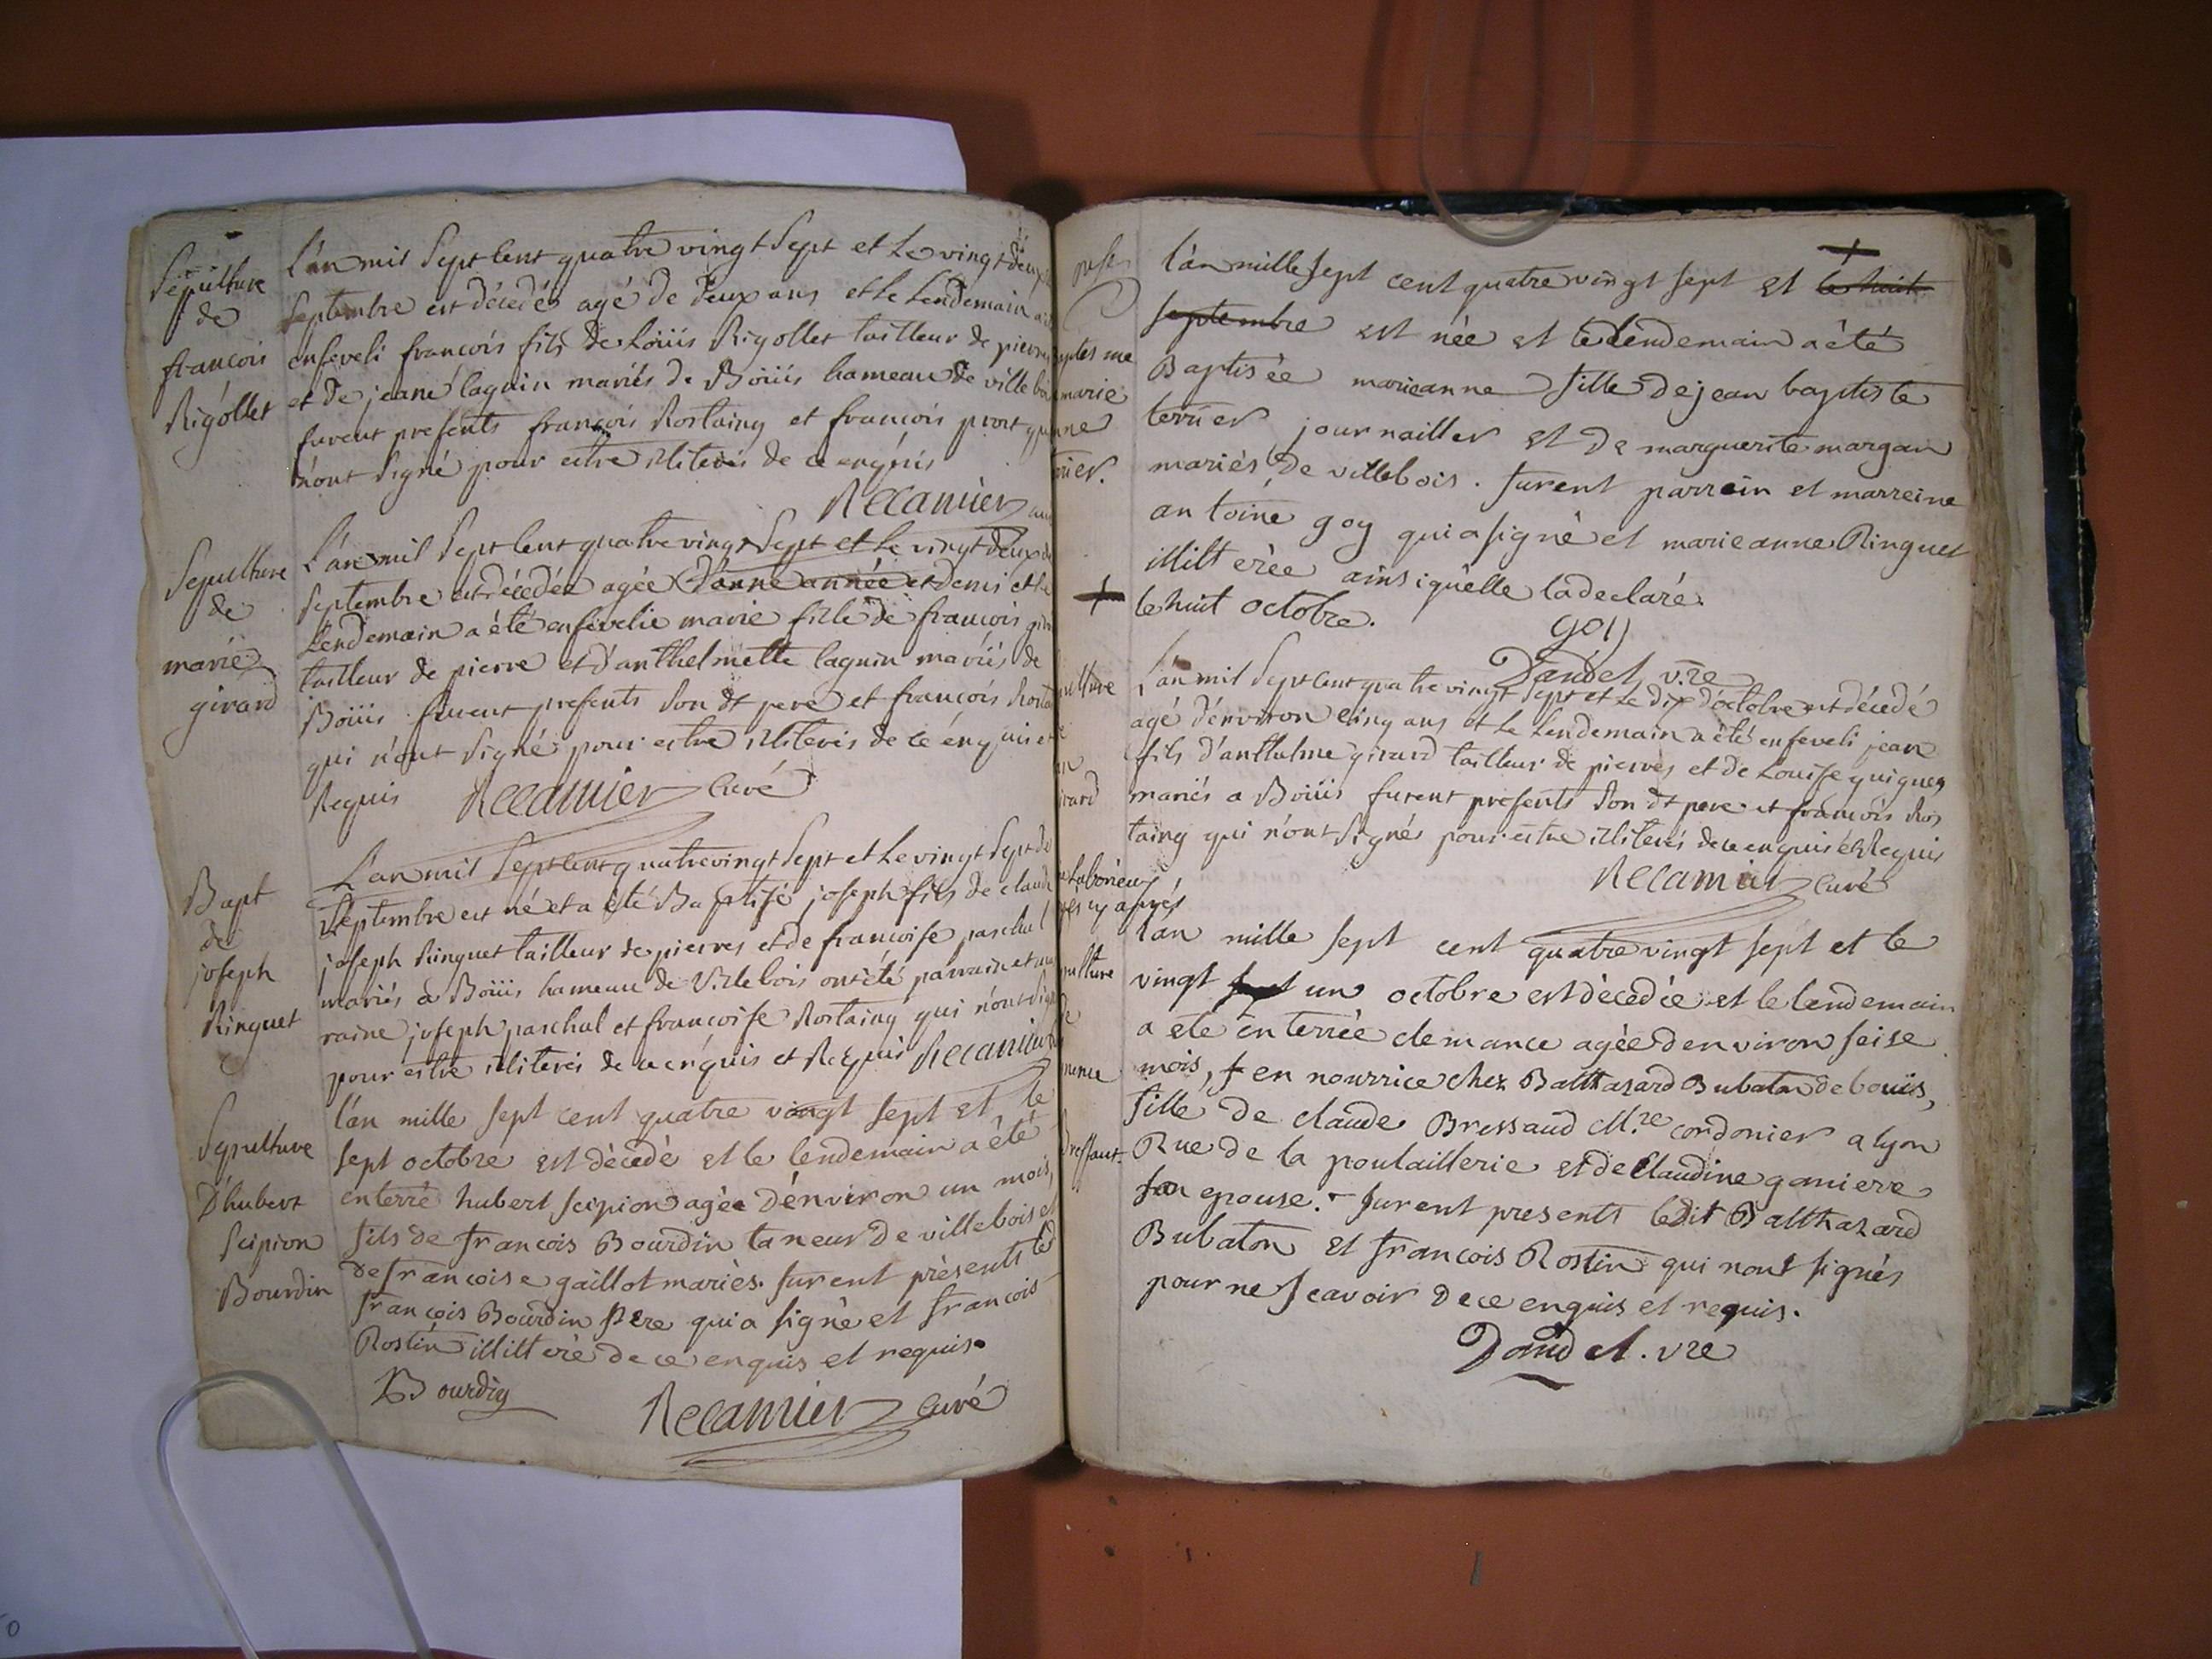 Sepulture
de
francois
Rigollet
L'an mil Sept Cent quatre vingt Sept et Le vingt deux
Septembre est décedés agé de deux ans et le Lendemain a
enseveli francois fils de Loüis Rigollet tailleur de pierre
et de jeane laguin mariés de Boüis hameau de villeboi
furent presents françois Rostaing et francois prost qui
n'ont Signé pour estre illiterés de ce enquis
Recamier
Sepulture
de
marie
girard
L'an mil Sept Cent quatre vingt Sept et Le vingt deux
Septembre est décedée agée d'une année et demi et le
Lendemain a été ensevelie marie fille de francois gir
tailleur de pierre et d'anthelmette laguin mariés de
Boüis furent presents Son dt pere et francois Rosta
qui n'ont Signé pour estre illiterés de ce enquis et
Requis Recamier Curé
Bapt
de
joseph
Ringuet
L'an mil Sept Cent quatrevingt Sept et Le vingt Sept de
Septembre est né et a été Baptisé joseph fils de claude
joseph Ringuet tailleur de pierres et de francoise paschal
mariés a Boüis hameau de Villebois ont été parrain et ma
raine joseph paschal et francoise Rostaing qui n'ont sign
pour estre illiterés de ce enquis et Requis Recamier
Sepulture
D'hubert
Scipion
Bourdin
l'an mille sept cent quatre vingt sept et le
sept octobre est dècedè et le lendemain a été
enterré hubert scipion agèe d'environ un mois,
fils de francois Bourdin taneur de villebois et
de francoise gaillot mariès. furent prèsents led
francois Bourdin Pere qui a signè et francois
Rostin illiterè de ce enquis et requis.
Bourdin
Recamier Curé
ptes me
marie
nne
rier.
l'an mille sept cent quatre vingt sept et le huit
septembre est née et le lendemain a été
Baptisèe marieanne fille de jean baptiste
terrier journaillier et de marguerite margan
mariès de villebois. furent parrein et marreine
antoine goy qui a signè et marieanne Ringuet
illiterèe ainsi qu'elle la declarè.
+ le huit octobre.
goy
Dandel v.re
pulture
rard
L'an mil Sept Cent quatre vingt Sept et Le dix d'octobre est décedé
agé d'environ cinq ans et Le Lendemain a été enseveli jean
fils d'anthelme girard tailleur de pierres et de Louise guigues
mariés a Boüis furent presents Son dt pere et francois Ros
taing qui n'ont Signés pour estre illiterés de ce enquis et Requis
Recamier Curé
pulture
mence
Bressaut.
l'an mille sept cent quatre vingt sept et le
vingt un octobre est dècedèe et le lendemain
a ete enterrèe clemance agèe d'environ seise
mois, + en nourrice chez Balthazard Bubaton de bouis,
fille de claude Bressaud M.re cordonier a lyon
Rue de la poulaillerie et de Claudine ganiere
son epouse. furent presents ledit Balthazard
Bubaton et francois Rostin qui n'ont signès
pour ne scavoir de ce enquis et requis.
Dandel. vre